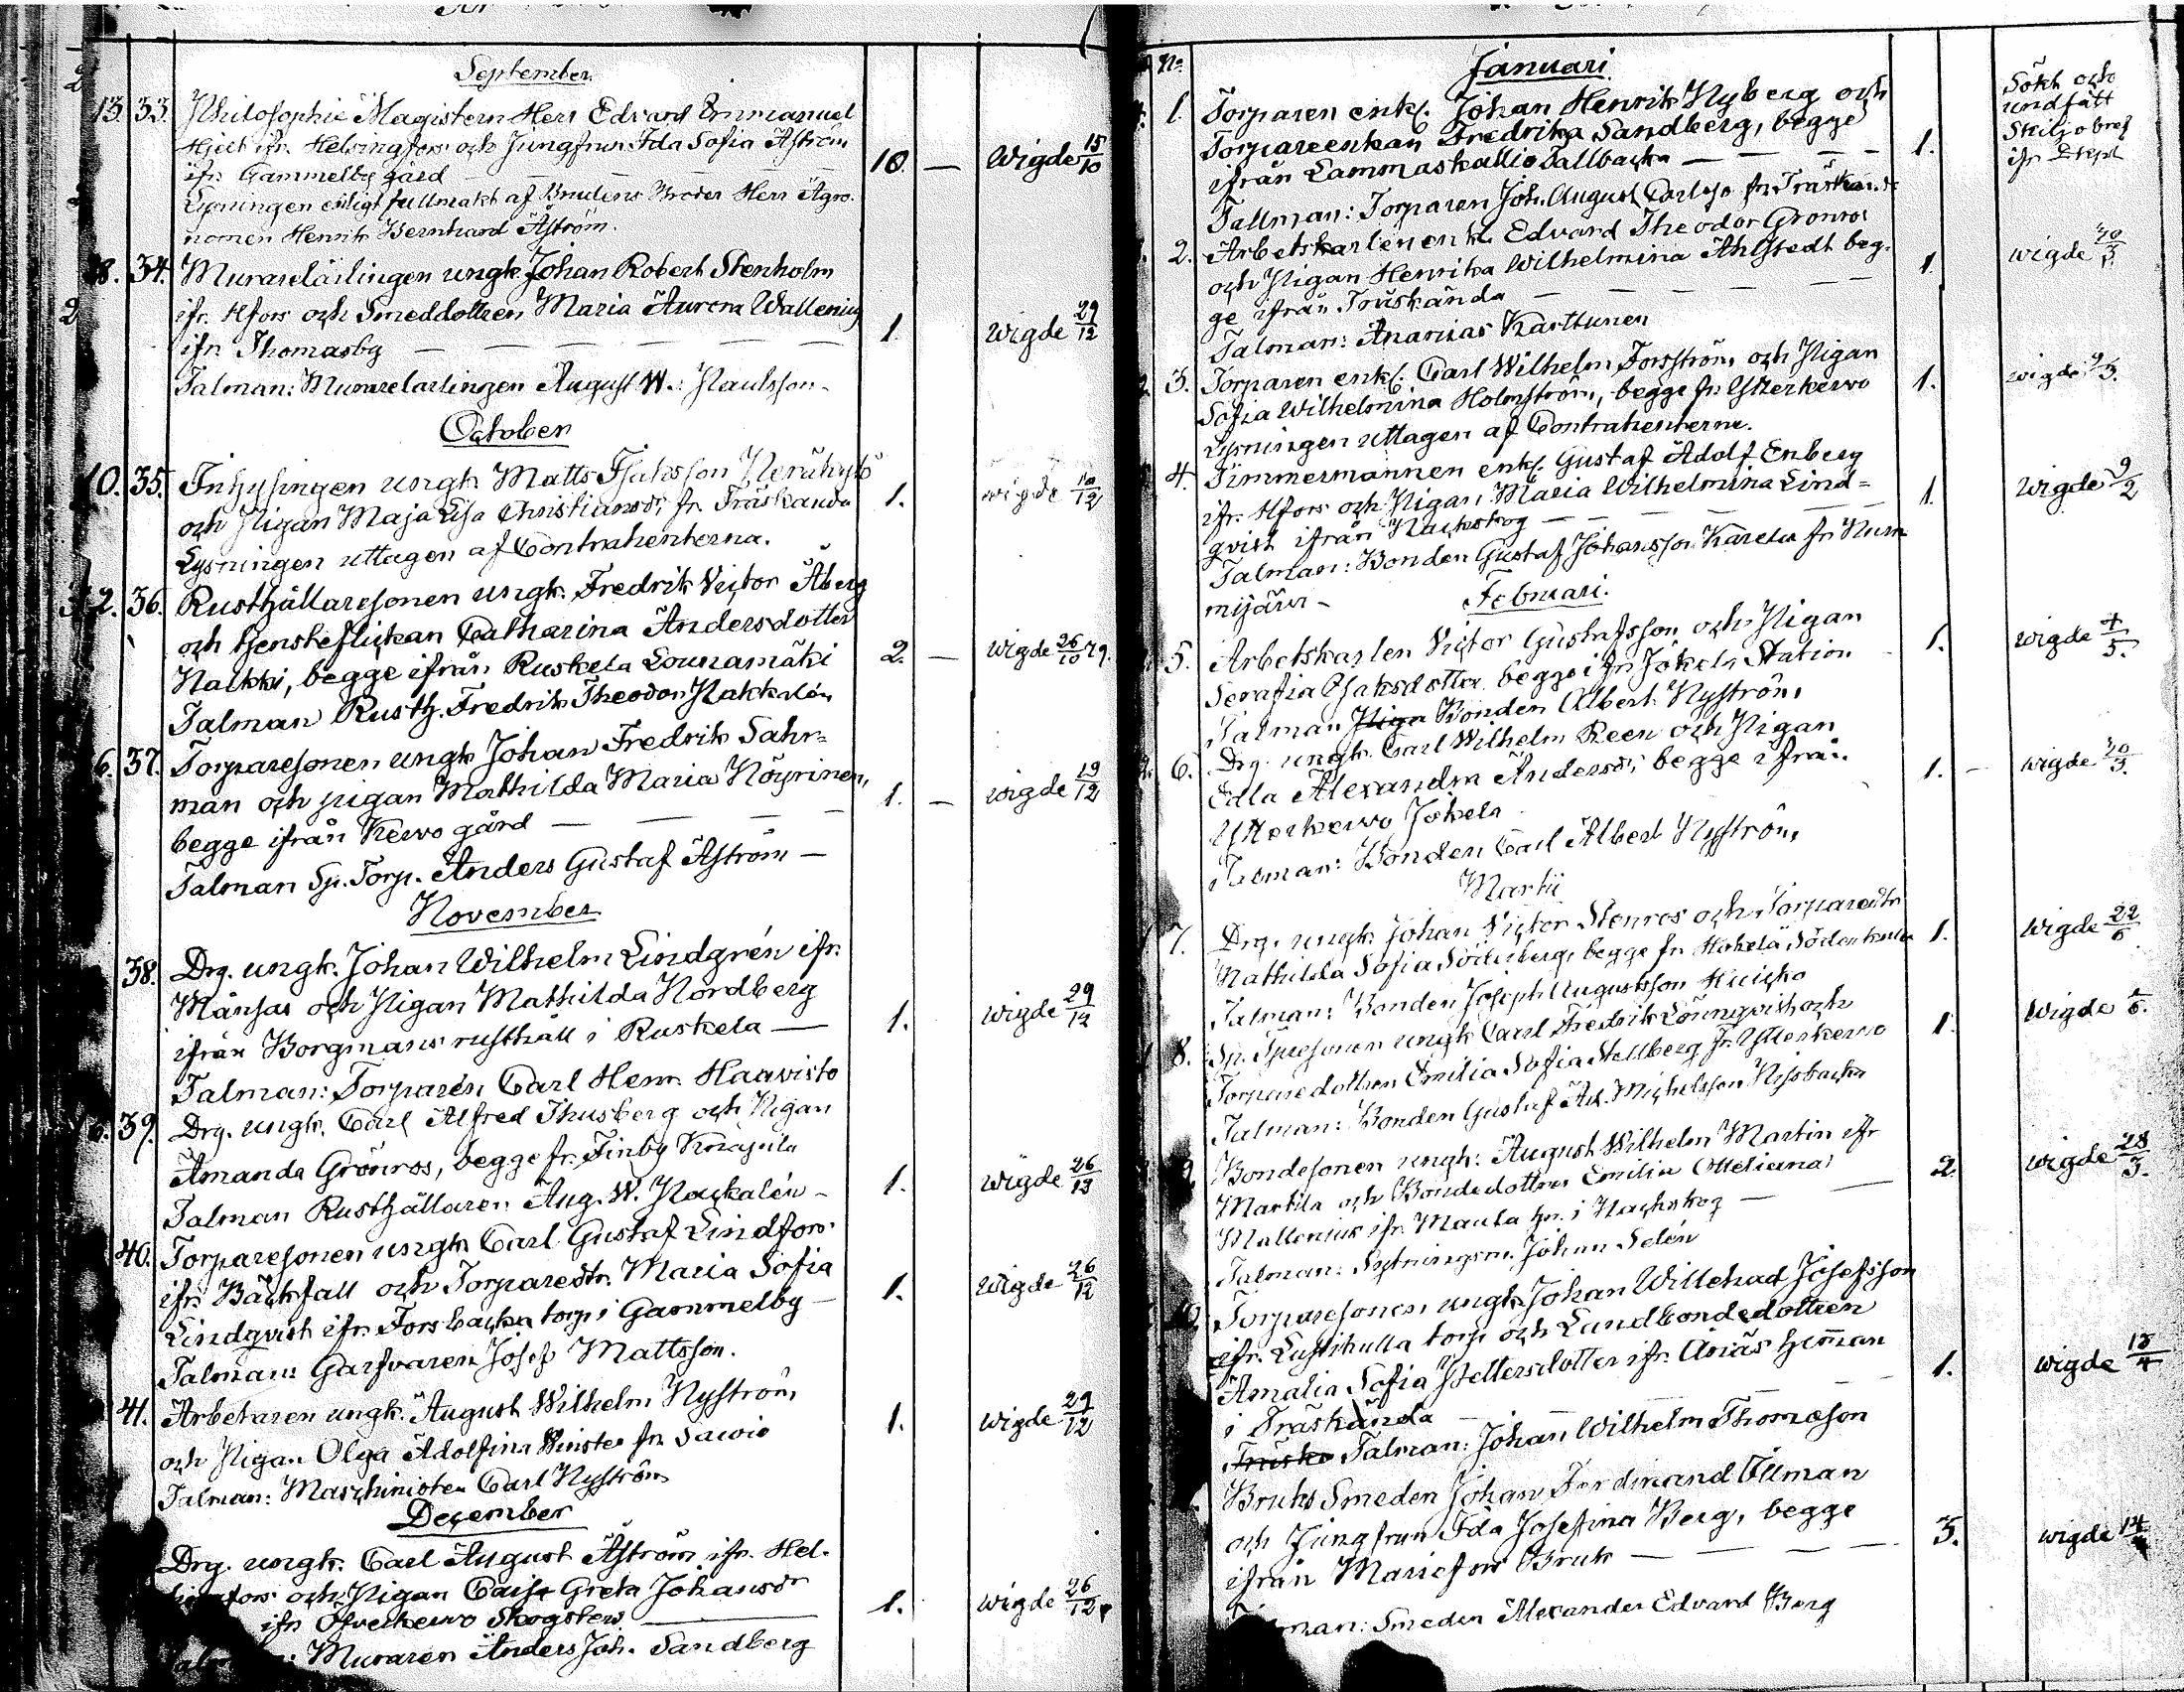 September
13. 33. Philosophie Magistern Herr Edvard Emmanuel
Hjelt ifr. Helsingfors och Jungfrun Ida Sofia Åström
ifr. Gammelby gård — — — — 10. — Wigde 15/10
Lysningen enligt fullmakt af Brudens Broder Herr Agro-
nomen Henrik Bernhard Åström.
18. 34. Murarelärlingen ungk. Johan Robert Stenholm
ifr. Hfors och Smeddottren Maria Aurora Wallenius
ifr. Thomasby — — — — 1. Wigde 29/12
Talman: Murarelärlingen August W. Paulsson.
October
10. 35. Inhysingen ungk. Matts Isaksson
och Pigan Maja Lisa Christiansdr, fr. Träskända 1. wigde
Lysningen uttagen af Contrahenterna.
12. 36. Rusthållaresonen ungk. Fredrik Victor Åberg
och tjensteflickan Catharina Andersdotter
begge ifrån Ruskela Lounamäki 2. — wigde 26/10 79.
Talman Rusth. Fredrik Theodor Nakkalén
6. 37. Torparesonen ungk. Johan Fredrik Sahr-
man och pigan Mathilda Maria Köyrinen,
begge ifrån Kervo gård — — — 1. — wigde 19/12
Talman Sp. Torp. Anders Gustaf Åström —
November
38. Drg. ungk. Johan Wilhelm Lindgrén ifr.
Månsas och Pigan Mathilda Nordberg
ifrån Borgmans rusthåll i Ruskela — 1. wigde 29/12
Talman: Torparen Carl Henr. Haavisto
39. Drg. ungk. Carl Alfred Thusberg och Pigan
Amanda Grönros, begge fr. Finby Knapula
Talman Rusthållaren Aug. W. Nackalén — 1. wigde
40. Torparesonen ungk. Carl Gustaf Lindfors
ifr. Bäckfall och Torparedtr. Maria Sofia
Lindqvist ifr. Forsbacka torp i Gammelby — 1. wigde 26/12
Talman: Garfvaren Josef Mattsson.
41. Arbetaren ungk. August Wilhelm Nyström
och Pigan Olga Adolfina Winster fr. Savio 1. wigde 29/12
Talman: Maschinisten Carl Nyström
December
Drg. ungk. Carl August Åström ifr. Hel-
och Pigan Caisa Greta Johansdr
ifr. Öfverkervo Skogsters — 1. wigde 26/12
Muraren Anders Joh. Sandberg
No. Januari
1. Torparen enkl. Johan Henrik Nyberg och
Torpareenkan Fredrika Sandberg, begge
ifrån Lammaskallio Tallbacka — — — 1. Sökt och undfått Skiljobref ifr.
Tallman: Torparen Joh. August Carlsso fr. Träskända
2. Arbetskarlen enkl. Edvard Theodor Grönros
och Pigan Henrika Wilhelmina Ahlstedt beg-
ge ifrån Träskända — — — 1. wigde
Talman: Ananias Karttunen
3. Torparen enkl. Carl Wilhelm Forsström och Pigan
Sofia Wilhelmina Holmström, begge fr. Ytterkervo 1. wigde
Lysningen uttagen af Contrahenterne.
4. Timmermannen enkl. Gustaf Adolf Enberg
ifr. Hfors och Pigan Maria Wilhelmina Lind-
qvist ifrån Nackskog — — — 1. Wigde 9/2
Talman: Bonden Gustaf Johansson Karela fr. Num-
mijärvi —
Februari.
5. Arbetskarlen Victor Gustafsson och Pigan
Serafia Isaksdotter begge ifr. Jokela Station 1. wigde 4/5.
Talman Piga Bonden Albert Nyström
6. Drg. ungk. Carl Wilhelm Reen och Pigan
Edla Alexandra Andersdr, begge ifrån
Ytterkervo Jokela 1. — wigde
Talman: Bonden Carl Albert Nyström
Martii
7. Drg. ungk. Johan Victor Stenros och Torparedtr
Mathilda Sofia Söderberg, begge fr. 1. wigde 22/6
Talman: Bonden Joseph Augustsson
8. Sp. ungk. Carl Fredrik Lönnqvist och
Torparedottren Emilia Sofia Stellberg fr. Ytterkervo 1. Wigde
Talman: Bonden Gustaf Ad. Michelsson Nissbacka
9. Bondesonen ungk. August Wilhelm Martin ifr.
Martila och Bondedottren Emilia Otteliana
Mallenius ifr. i Nackskog — 2. wigde 28/3.
Talman: Sytningsm. Johan Selén
10. Torparesonen ungk. Johan Willehad Josefsson
ifr. Lustikulla torp och Landbondedottren
Amalia Sofia Pettersdotter ifr. Anäs hemman
i Träskända — — 1. wigde
Träsk Talman: Johan Wilhelm Thomæson
Bruks Smeden Johan Ferdinand Öllman
och Jungfrun Ida Josefina Berg, begge
ifrån Mariefors Bruk — — — 3. wigde
Smeden Alexander Edvard Berg